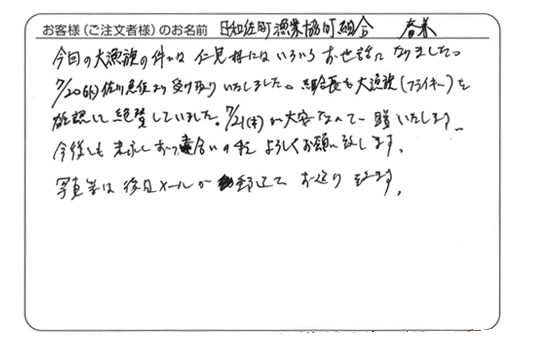 お客様(ご注文者様)のお名前 日和佐町漁業協同組合 春木
今回の大漁旗の件では 仁見様には いろいろ お世話に なりました。
7/20(水) 佐川急便より 受け取り いたしました。組合長も大漁旗(フライキ)を
確認して 絶賛していました。7/21(木)
今後とも 末永い おつき合いの程 よろしくお願い致します。
写真等は 後日メールか 郵送で お送り します。